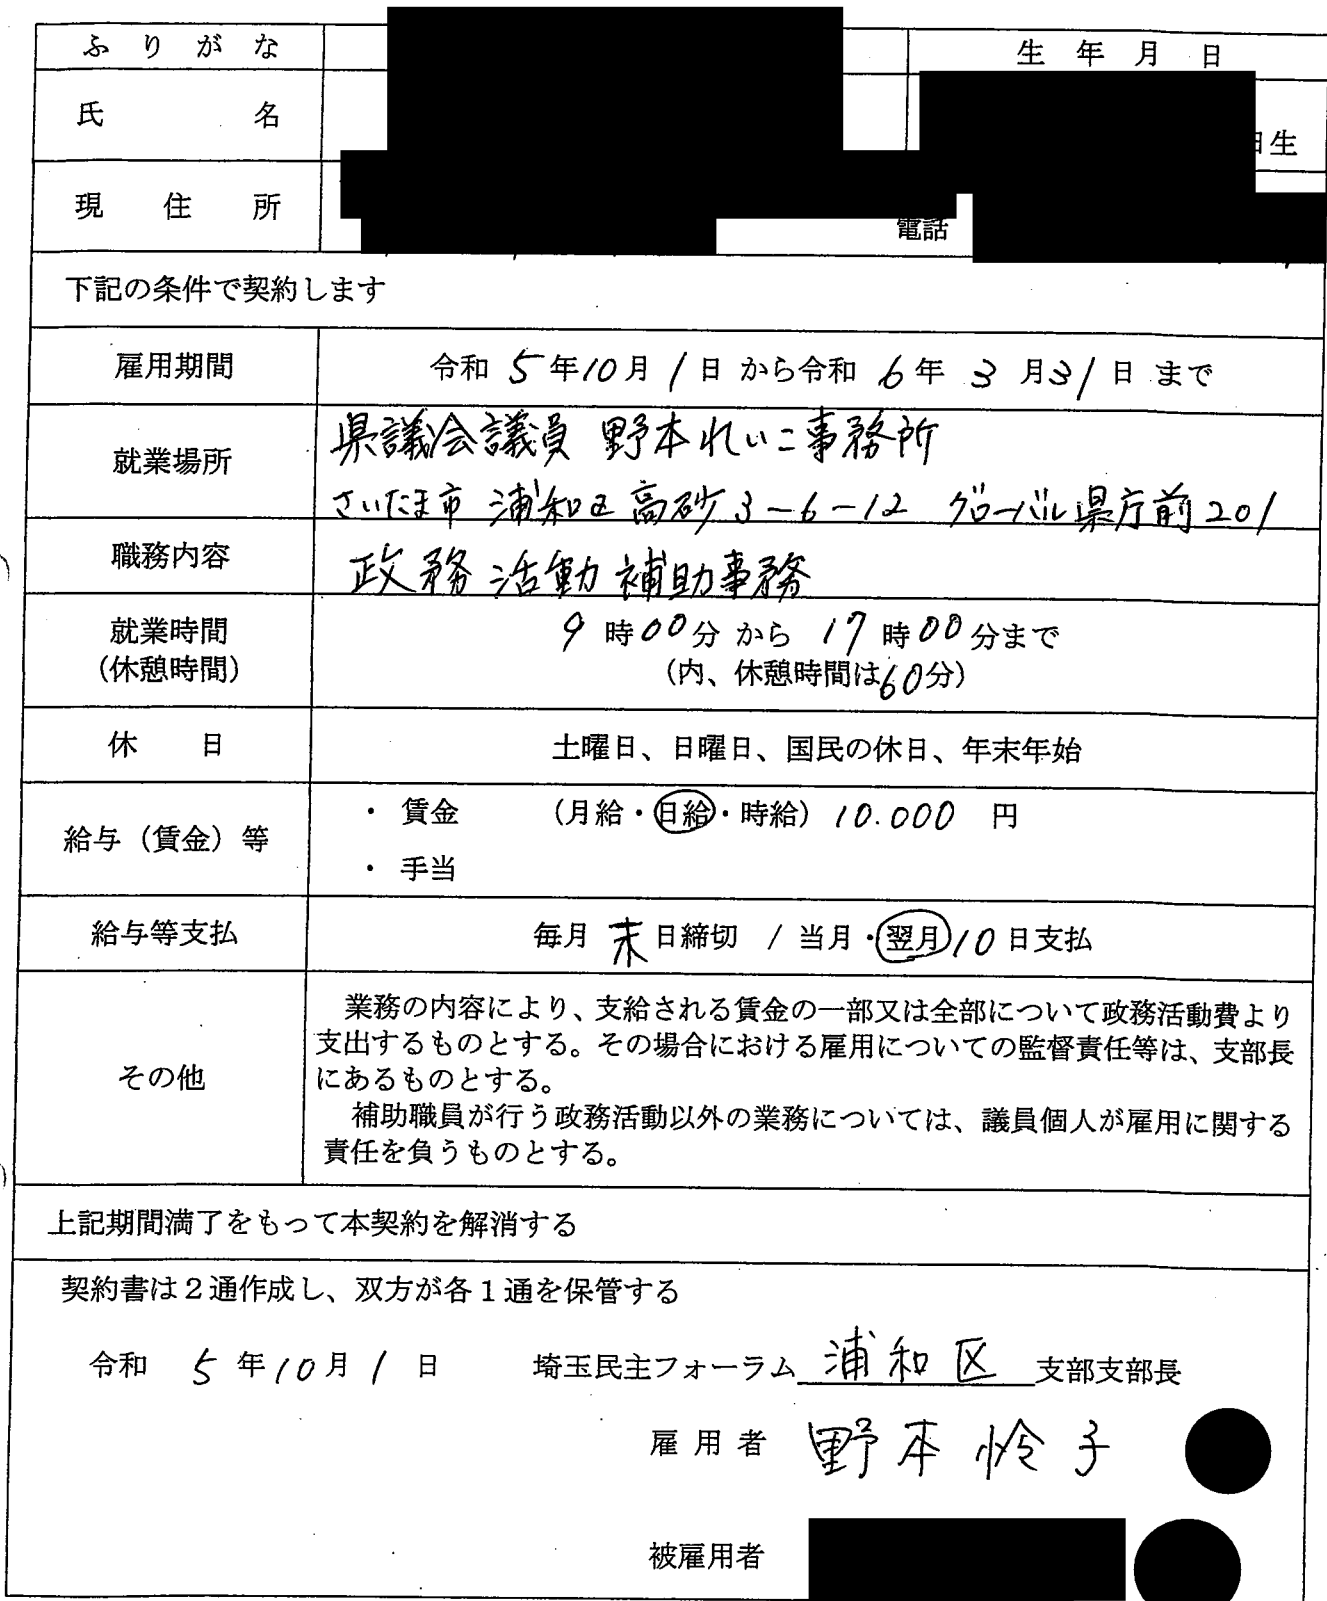 ふりがな
生年月日
氏名
日生
現住所
電話
下記の条件で契約します
雇用期間
令和 5年10月1日 から令和 6年 3月31日 まで
就業場所
県議会議員 野本れいこ事務所
さいたま市 浦和区高砂3-6-12 グローバル県庁前201
職務内容
政務活動補助事務
就業時間
(休憩時間)
9時00分 から 17時00分まで
(内、休憩時間は60分)
休日
土曜日、日曜日、国民の休日、年末年始
給与（賃金）等
・ 賃金 (月給・日給・時給) 10.000 円
・ 手当
給与等支払
毎月 末日締切 / 当月・翌月10日支払
その他
業務の内容により、支給される賃金の一部又は全部について政務活動費より
支出するものとする。その場合における雇用についての監督責任等は、支部長
にあるものとする。
補助職員が行う政務活動以外の業務については、議員個人が雇用に関する
責任を負うものとする。
上記期間満了をもって本契約を解消する
契約書は２通作成し、双方が各１通を保管する
令和 5年10月1日
埼玉民主フォーラム 浦和区 支部支部長
雇用者 野本怜子
被雇用者